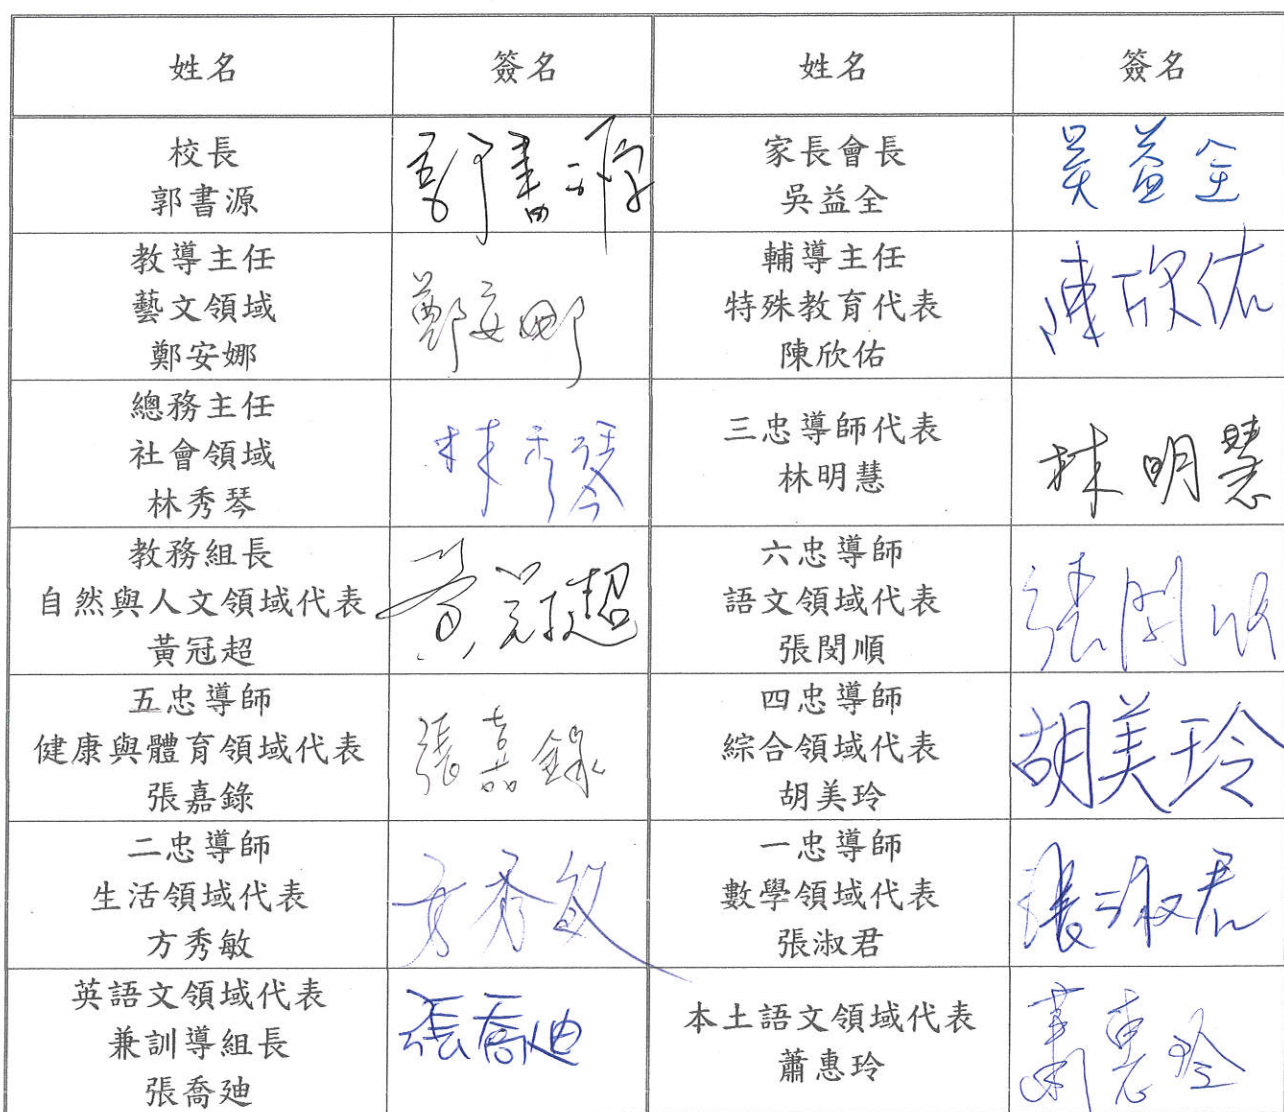 姓名 簽名 姓名 簽名
校長
郭書源
郭書源
家長會長
吳益全
吳益全
教導主任
藝文領域
鄭安娜
鄭安娜
輔導主任
特殊教育代表
陳欣佑
陳欣佑
總務主任
社會領域
林秀琴
林秀琴
三忠導師代表
林明慧
林明慧
教務組長
自然與人文領域代表
黃冠超
黃冠超
六忠導師
語文領域代表
張閔順
張閔順
五忠導師
健康與體育領域代表
張嘉錄
張嘉錄
四忠導師
綜合領域代表
胡美玲
胡美玲
二忠導師
生活領域代表
方秀敏
方秀敏
一忠導師
數學領域代表
張淑君
張淑君
英語文領域代表
兼訓導組長
張喬廸
張喬廸
本土語文領域代表
蕭惠玲
蕭惠玲